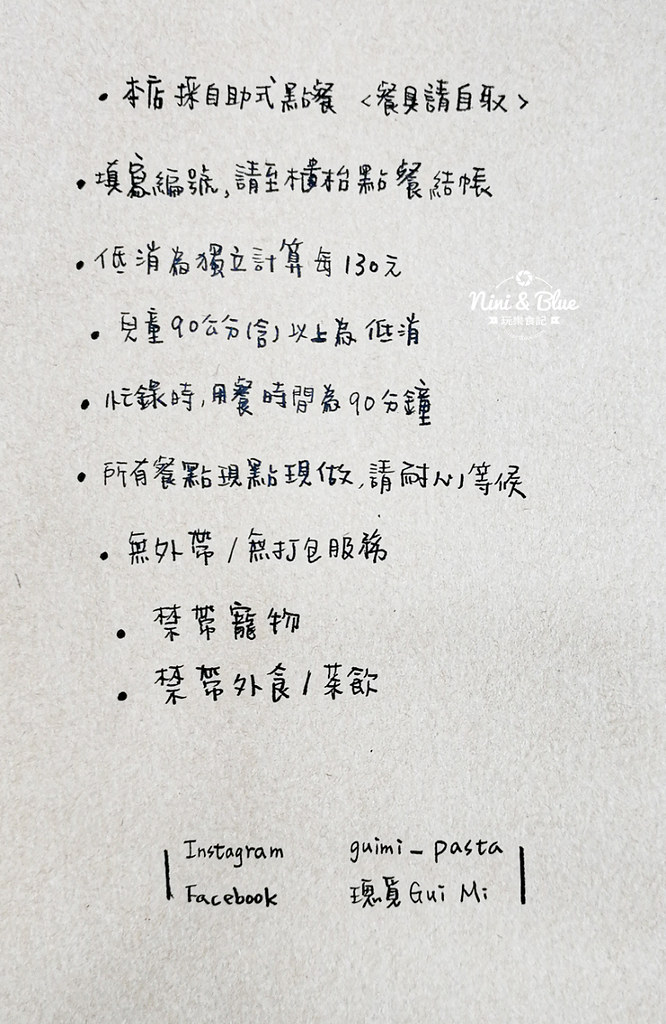 • 本店採自助式點餐 <餐具請自取>
• 填寫編號,請至櫃枱點餐結帳
• 低消為獨立計算每130元
Nini & Blue
玩樂食記
• 兒童90公分(含)以上為低消
• 忙錄時,用餐時間為90分鐘
• 所有餐點現點現做,請耐心等候
• 無外帶/無打包服務
• 禁帶寵物
• 禁帶外食/茶飲
Instagram guimi_pasta
Facebook 瑰覓 Gui Mi